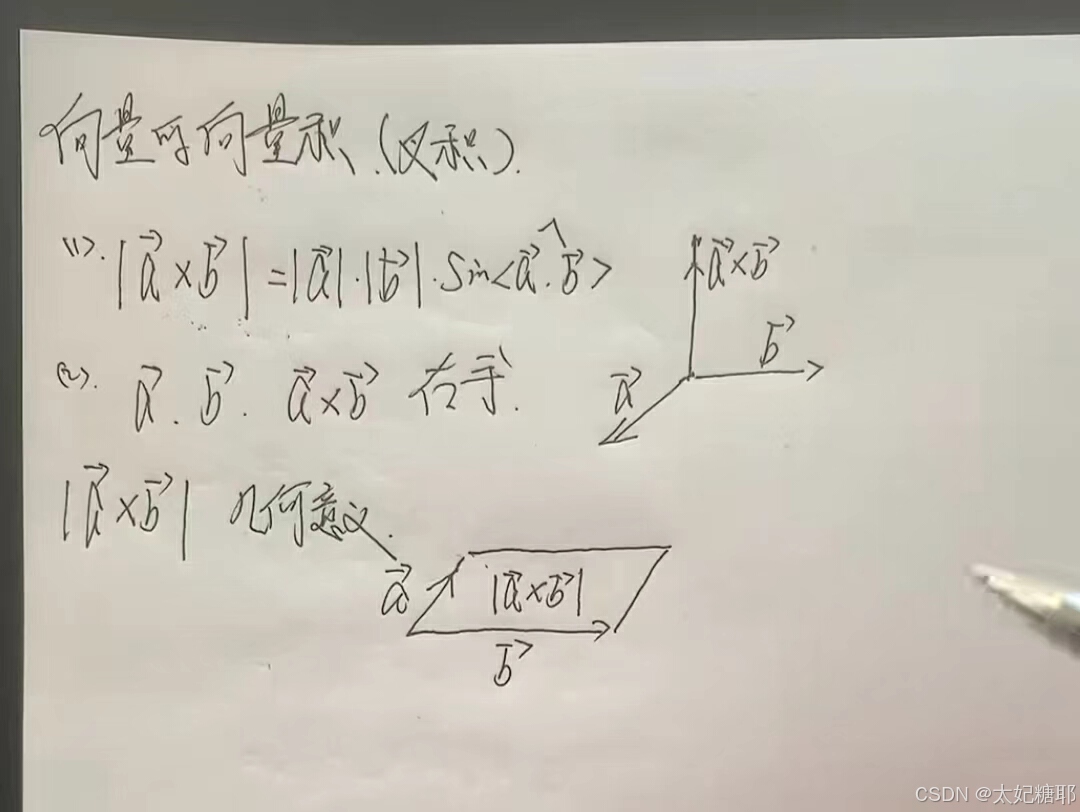 向量的向量积.(叉积).
(1). |a⃗×b⃗|=|a⃗|·|b⃗|·Sin<a⃗.b⃗>
a⃗×b⃗
b⃗
a⃗
(2). a⃗. b⃗. a⃗×b⃗ 右手.
|a⃗×b⃗| 几何意义.
a⃗
|a⃗×b⃗|
b⃗
CSDN @太妃糖耶